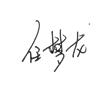 任梦龙